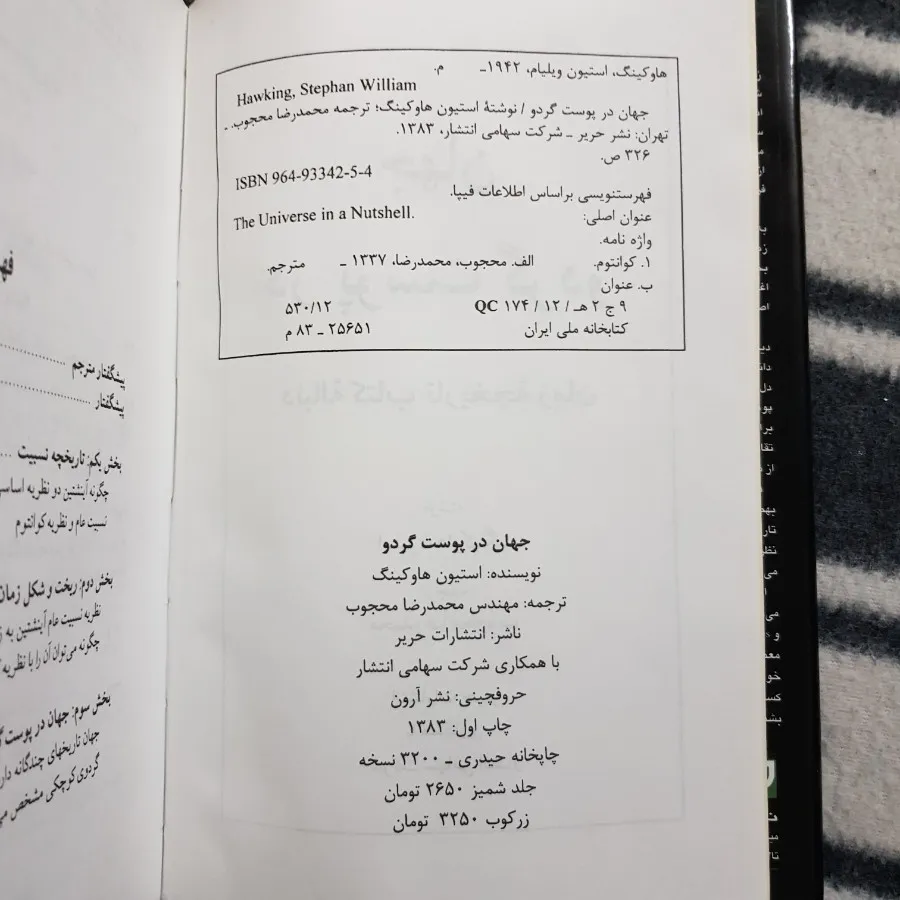 هاوکینگ، استیون ویلیام، ۱۹۴۲ـ م.
Hawking, Stephan William
جهان در پوست گردو / نوشتهٔ استیون هاوکینگ؛ ترجمه محمدرضا محجوب. ـ
تهران: نشر حریر ـ شرکت سهامی انتشار، ۱۳۸۳.
۳۲۶ ص.
ISBN 964-93342-5-4
فهرستنویسی براساس اطلاعات فیپا.
عنوان اصلی: The Universe in a Nutshell.
واژه نامه.
۱. کوانتوم. الف. محجوب، محمدرضا، ۱۳۳۷ ـ مترجم.
ب. عنوان
۹ ج ۲ هـ / ۱۲ / ۱۷۴ QC ۵۳۰/۱۲
کتابخانه ملی ایران ۲۵۶۵۱ ـ ۸۳ م
جهان در پوست گردو
نویسنده: استیون هاوکینگ
ترجمه: مهندس محمدرضا محجوب
ناشر: انتشارات حریر
با همکاری شرکت سهامی انتشار
حروفچینی: نشر آرون
چاپ اول: ۱۳۸۳
چاپخانه حیدری ـ ۳۲۰۰ نسخه
جلد شمیز ۲۶۵۰ تومان
زرکوب ۳۲۵۰ تومان
پیشگفتار مترجم
پیشگفتار
بخش یکم: تاریخچه نسبیت
چگونه آینشتین دو نظریه اساسی
نسبیت عام و نظریه کوانتوم
بخش دوم: ریخت و شکل زمان
نظریه نسبیت عام آینشتین به
چگونه می‌توان آن را با نظریه
بخش سوم: جهان در پوست
جهان تاریخهای چندگانه
گردوی کوچکی مشخص